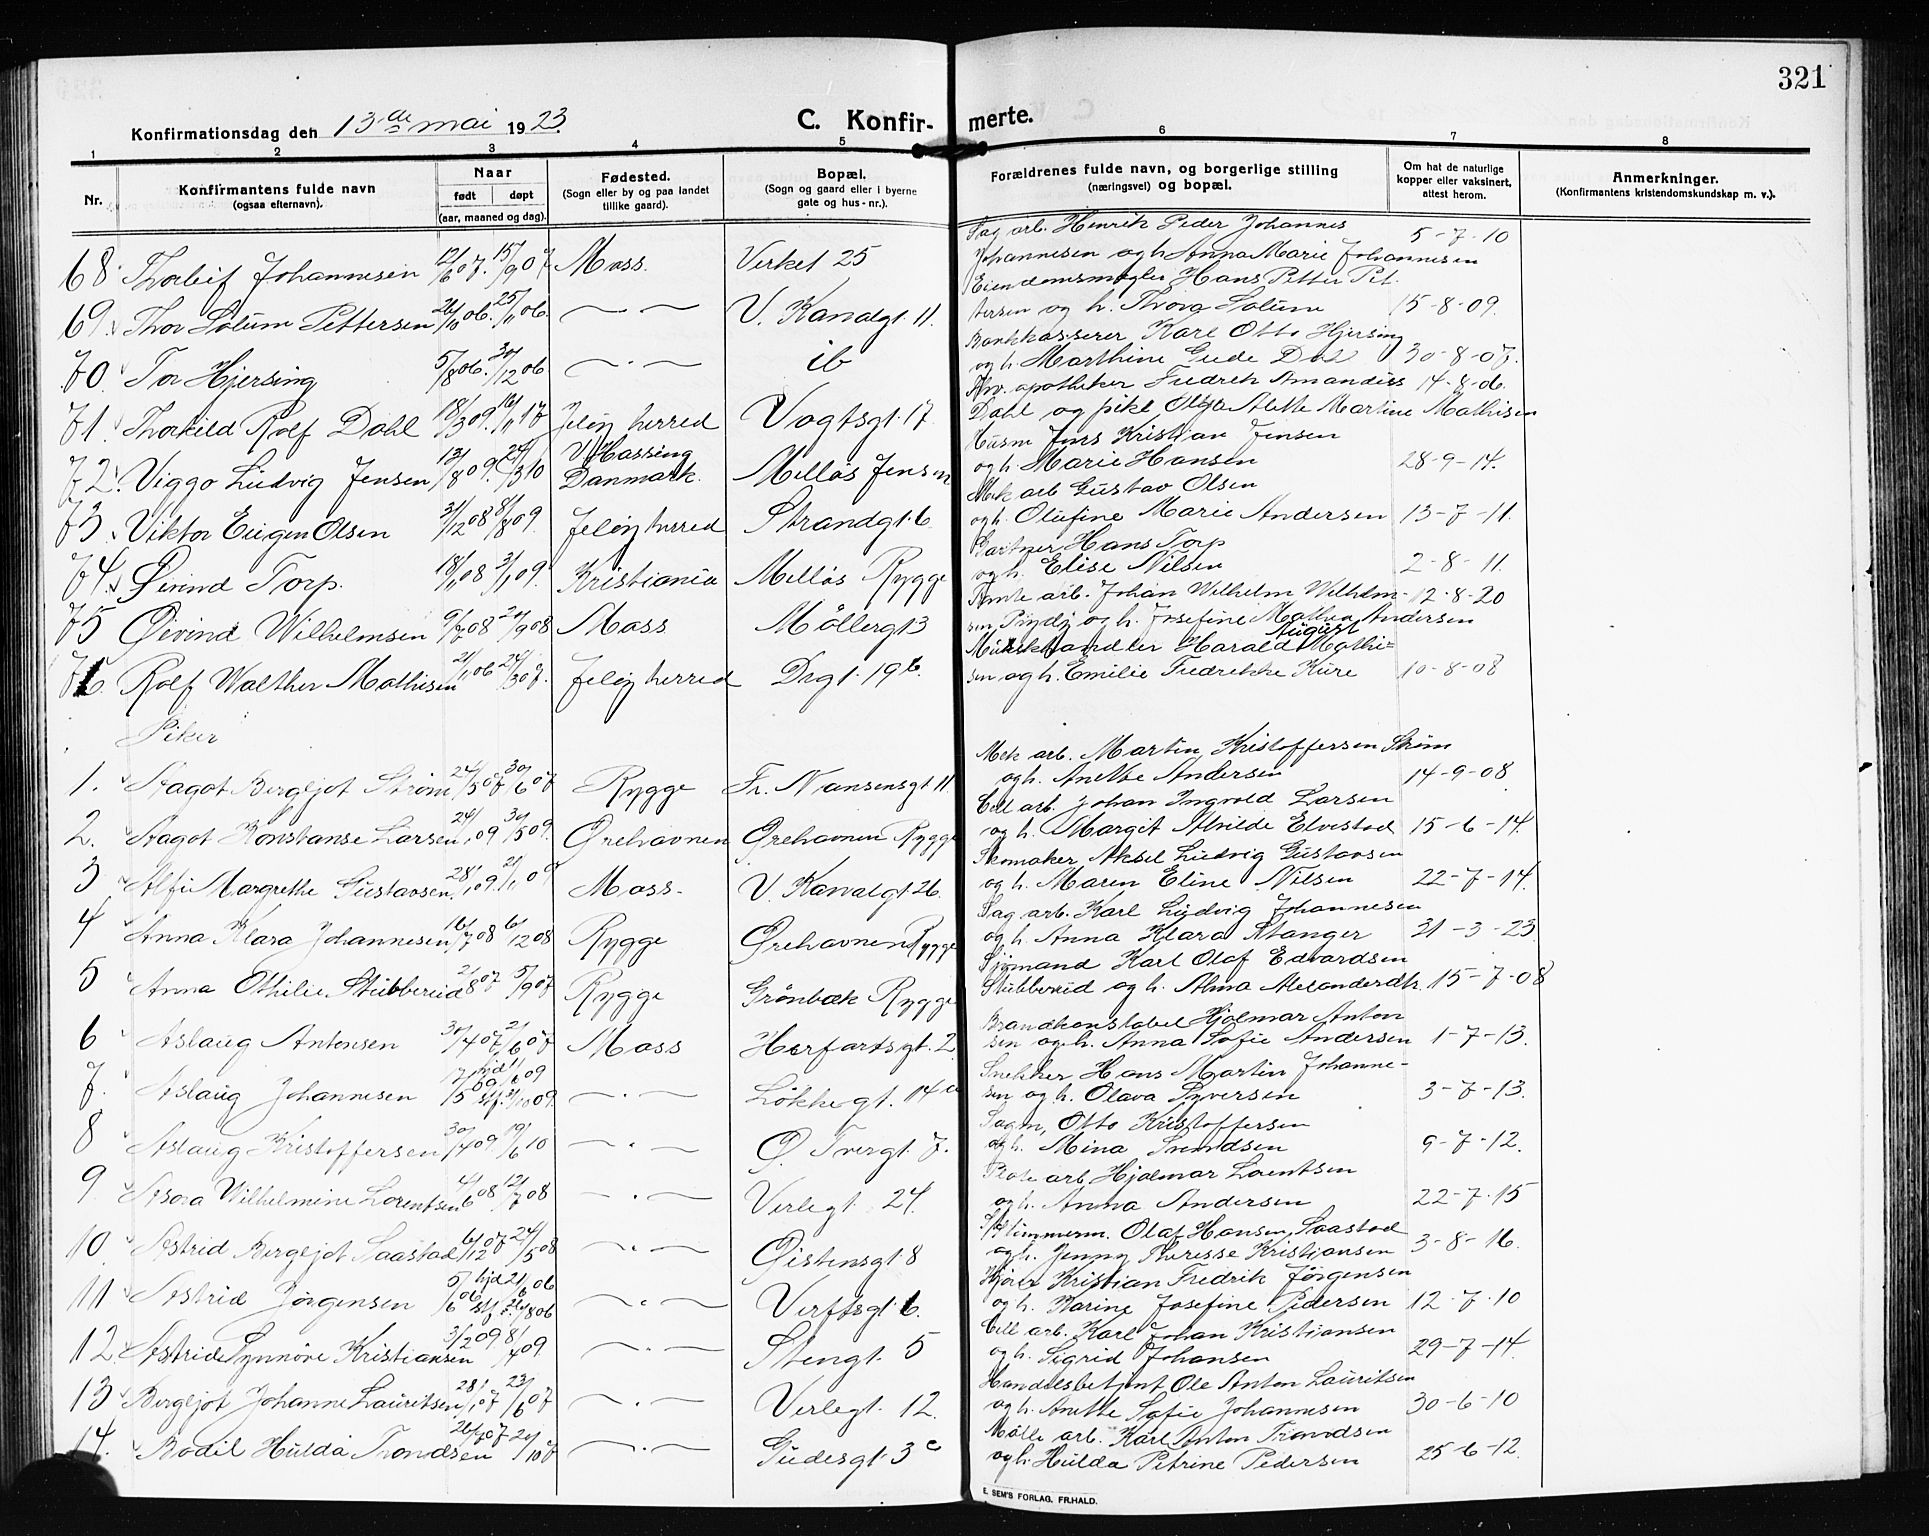 321
Konfirmationsdag den 13de mai 1923.
C. Konfirmerte.
1 2 3 4 5 6 7 8
Nr.
Konfirmantens fulde navn
(ogsaa efternavn).
Naar
født døpt
(aar, maaned og dag).
Fødested.
(Sogn eller by og paa landet
tillike gaard).
Bopæl.
(Sogn og gaard eller i byerne
gate og hus-nr.).
Forældrenes fulde navn, og borgerlige stilling
(næringsvei) og bopæl.
Om hat de naturlige
kopper eller vaksinert,
attest herom.
Anmerkninger.
(Konfirmantens kristendomskundskap m. v.).
Sag arb. Henrik Peder Johannes
68. Thorleif Johannesen 12/6 07. 15/9 07 Moss. Verket 25 Johannesen og h. Anna Marie Johannesen 5-7-10
Eiendomsmægler Hans Petter Pet-
69. Thor Solum Pettersen 26/10 06. 25/11 06. —·— V. Kanalgt. 11. tersen og h. Thora Solum 15-8-09.
Bankkasserer Karl Otto Hjersing
70. Tor Hjersing 5/8 06. 30/12 06 —·— ib og h. Marthine Gude Dal 30-8-07.
apotheker Fredrik Amandius 14-8-06.
71. Thorkild Rolf Dahl 18/3 09. 16/11 17 Jeløy herred Vogtsgt. 17 Dahl og pike Olga Alette Martine Mathisen
Husm Jens Kristian Jensen
72. Viggo Ludvig Jensen 13/8 09. 29/3 10 V. Hassing Danmark. Melløs Jensen og h. Marie Hansen 28-9-14.
Mek arb Gustav Olsen
73. Viktor Eugen Olsen 31/12 08 8/8 09. Jeløy herred Strandgt. 6 og h. Olufine Marie Andersen 13-7-11.
Gartner Hans Torp
74. Øivind Torp. 18/11 08 3/1 09. Kristiania Melløs Rygge og h. Elise Nilsen 2-8-11.
Tomte arb. Johan Wilhelm Wilhelm- 12-8-20
75 Øivind Wilhelmsen 9/7 08 20/9 08 Moss Møllergt 3 sen og h. Josefine Mathea Andersen
Musikhandler Harald August Mathi=
76. Rolf Walther Mathisen 21/11 06 24/3 07. Jeløy herred Drgt. 19 b. sen og h. Emilie Fredrikke Kure 10-8-08
Piker
Mek arb. Martin Kristoffersen Strøm
1. Aagot Bergljot Strøm 24/5 07 30/6 07 Rygge Fr. Nansensgt 11. og h. Anette Andersen 14-9-08
Cell arb. Johan Ingvold Larsen
2. Aagot Konstanse Larsen 24/1 09 30/5 09. Ørehavnen Ørehavnen Rygge og h. Margit Alvilde Elvestad 15-6-14.
Skomaker Aksel Ludvig Gustavsen
3 Alfie Margrethe Gustavsen 28/1 09. 21/1 09 Moss. V. Kanalgt 26. og h. Maren Eline Nilsen 22-7-14.
Sag arb. Karl Ludvig Johannesen
4 Anna Klara Johannesen 16/7 08 6/12 08 Rygge Ørehavnen Rygge og h. Anna Klara Stanger 31-3-23.
Sjømand Karl Olaf Edvardsen
5 Anna Othilie Stubberud 21/8 07 5/9 07 Rygge Grønbæk Rygge Stubberud og h. Alma Alexanderdtr. 15-7-08
Brandkonstabel Hjalmar Anton
6 Aslaug Antonsen 30/4 07 2/6 07 Moss Herfartsgt. 2. sen og h. Anna Sofie Andersen 1-7-13.
Snekker Hans Martin Johanne-
7. Aslaug Johannesen 17/5 09 hjd 1/6 09 stf. 31/10 09. —·— Løkkegt. 14a sen og h. Olava Syversen 3-7-13.
Sagm. Otto Kristoffersen
8 Aslaug Kristoffersen 30/4 09. 19/6 10 —·— Ø. Tvergt. 7. og h. Mina Svendsen 9-7-12.
arb. Hjalmar Lorentsen
9 Asora Wilhelmine Lorentsen 4/6 08 12/7 08 —·— Verlegt 24. og h. Anna Andersen 22-7-15
Timmerm. Olaf Hansen Saastad
10. Astrid Bergljot Saastad 6/12 07 24/5 08 —·— Øistensgt 8 og h. Jenny Theresse Kristiansen 3-8-16.
Kjører Kristian Fredrik Jørgensen
11 Astrid Jørgensen 5/6 06 hjd 21/6 06 stf. 26/8 06 —·— Verftsgt. 6. og h. Karine Josefine Pedersen 12-7-10
Cell arb. Karl Johan Kristiansen
12. Astride Synnøve Kristiansen 3/2 09 8/4 09. —·— Stengt. 5 og h. Sigrid Johansen 29-7-14.
Handelsbetjent Ole Anton Lauritsen
13 Bergljot Johanne Lauritsen 28/1 07 23/6 07 —·— Verlegt. 12. og h. Anette Sofie Johannesen 30-6-10
Mølle arb. Karl Anton Trondsen
14. Bodil Hulda Trondsen 26/7 07 20/10 07 —·— Gudesgt. 3c og h. Hulda Petrine Pedersen 25-6-12.
E. SEM'S FORLAG, FR.HALD.